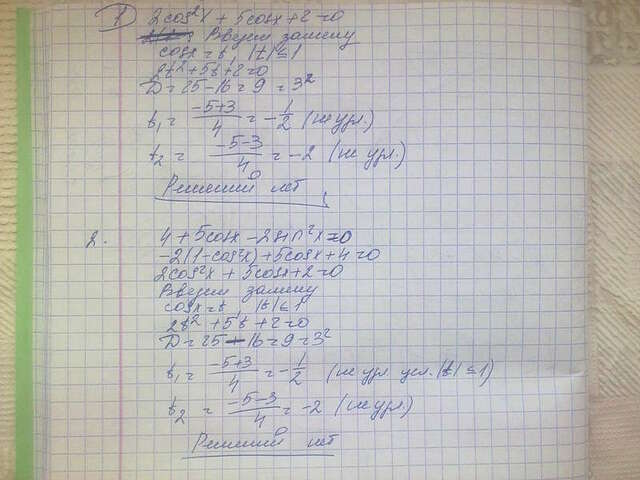 1) 2cos²x + 5cosx + 2 = 0
Введем замену
cosx = t |t| ≤ 1
2t² + 5t + 2 = 0
D = 25 - 16 = 9 = 3²
t₁ = (-5+3)/4 = -1/2 (не удл.)
t₂ = (-5-3)/4 = -2 (не удл.)
Решений нет
2. 4 + 5cosx - 2sin²x = 0
-2(1-cos²x) + 5cosx + 4 = 0
2cos²x + 5cosx + 2 = 0
Введем замену
cosx = t |t| ≤ 1
2t² + 5t + 2 = 0
D = 25 - 16 = 9 = 3²
t₁ = (-5+3)/4 = -1/2 (не удл. усл. |t| ≤ 1)
t₂ = (-5-3)/4 = -2 (не удл.)
Решений нет